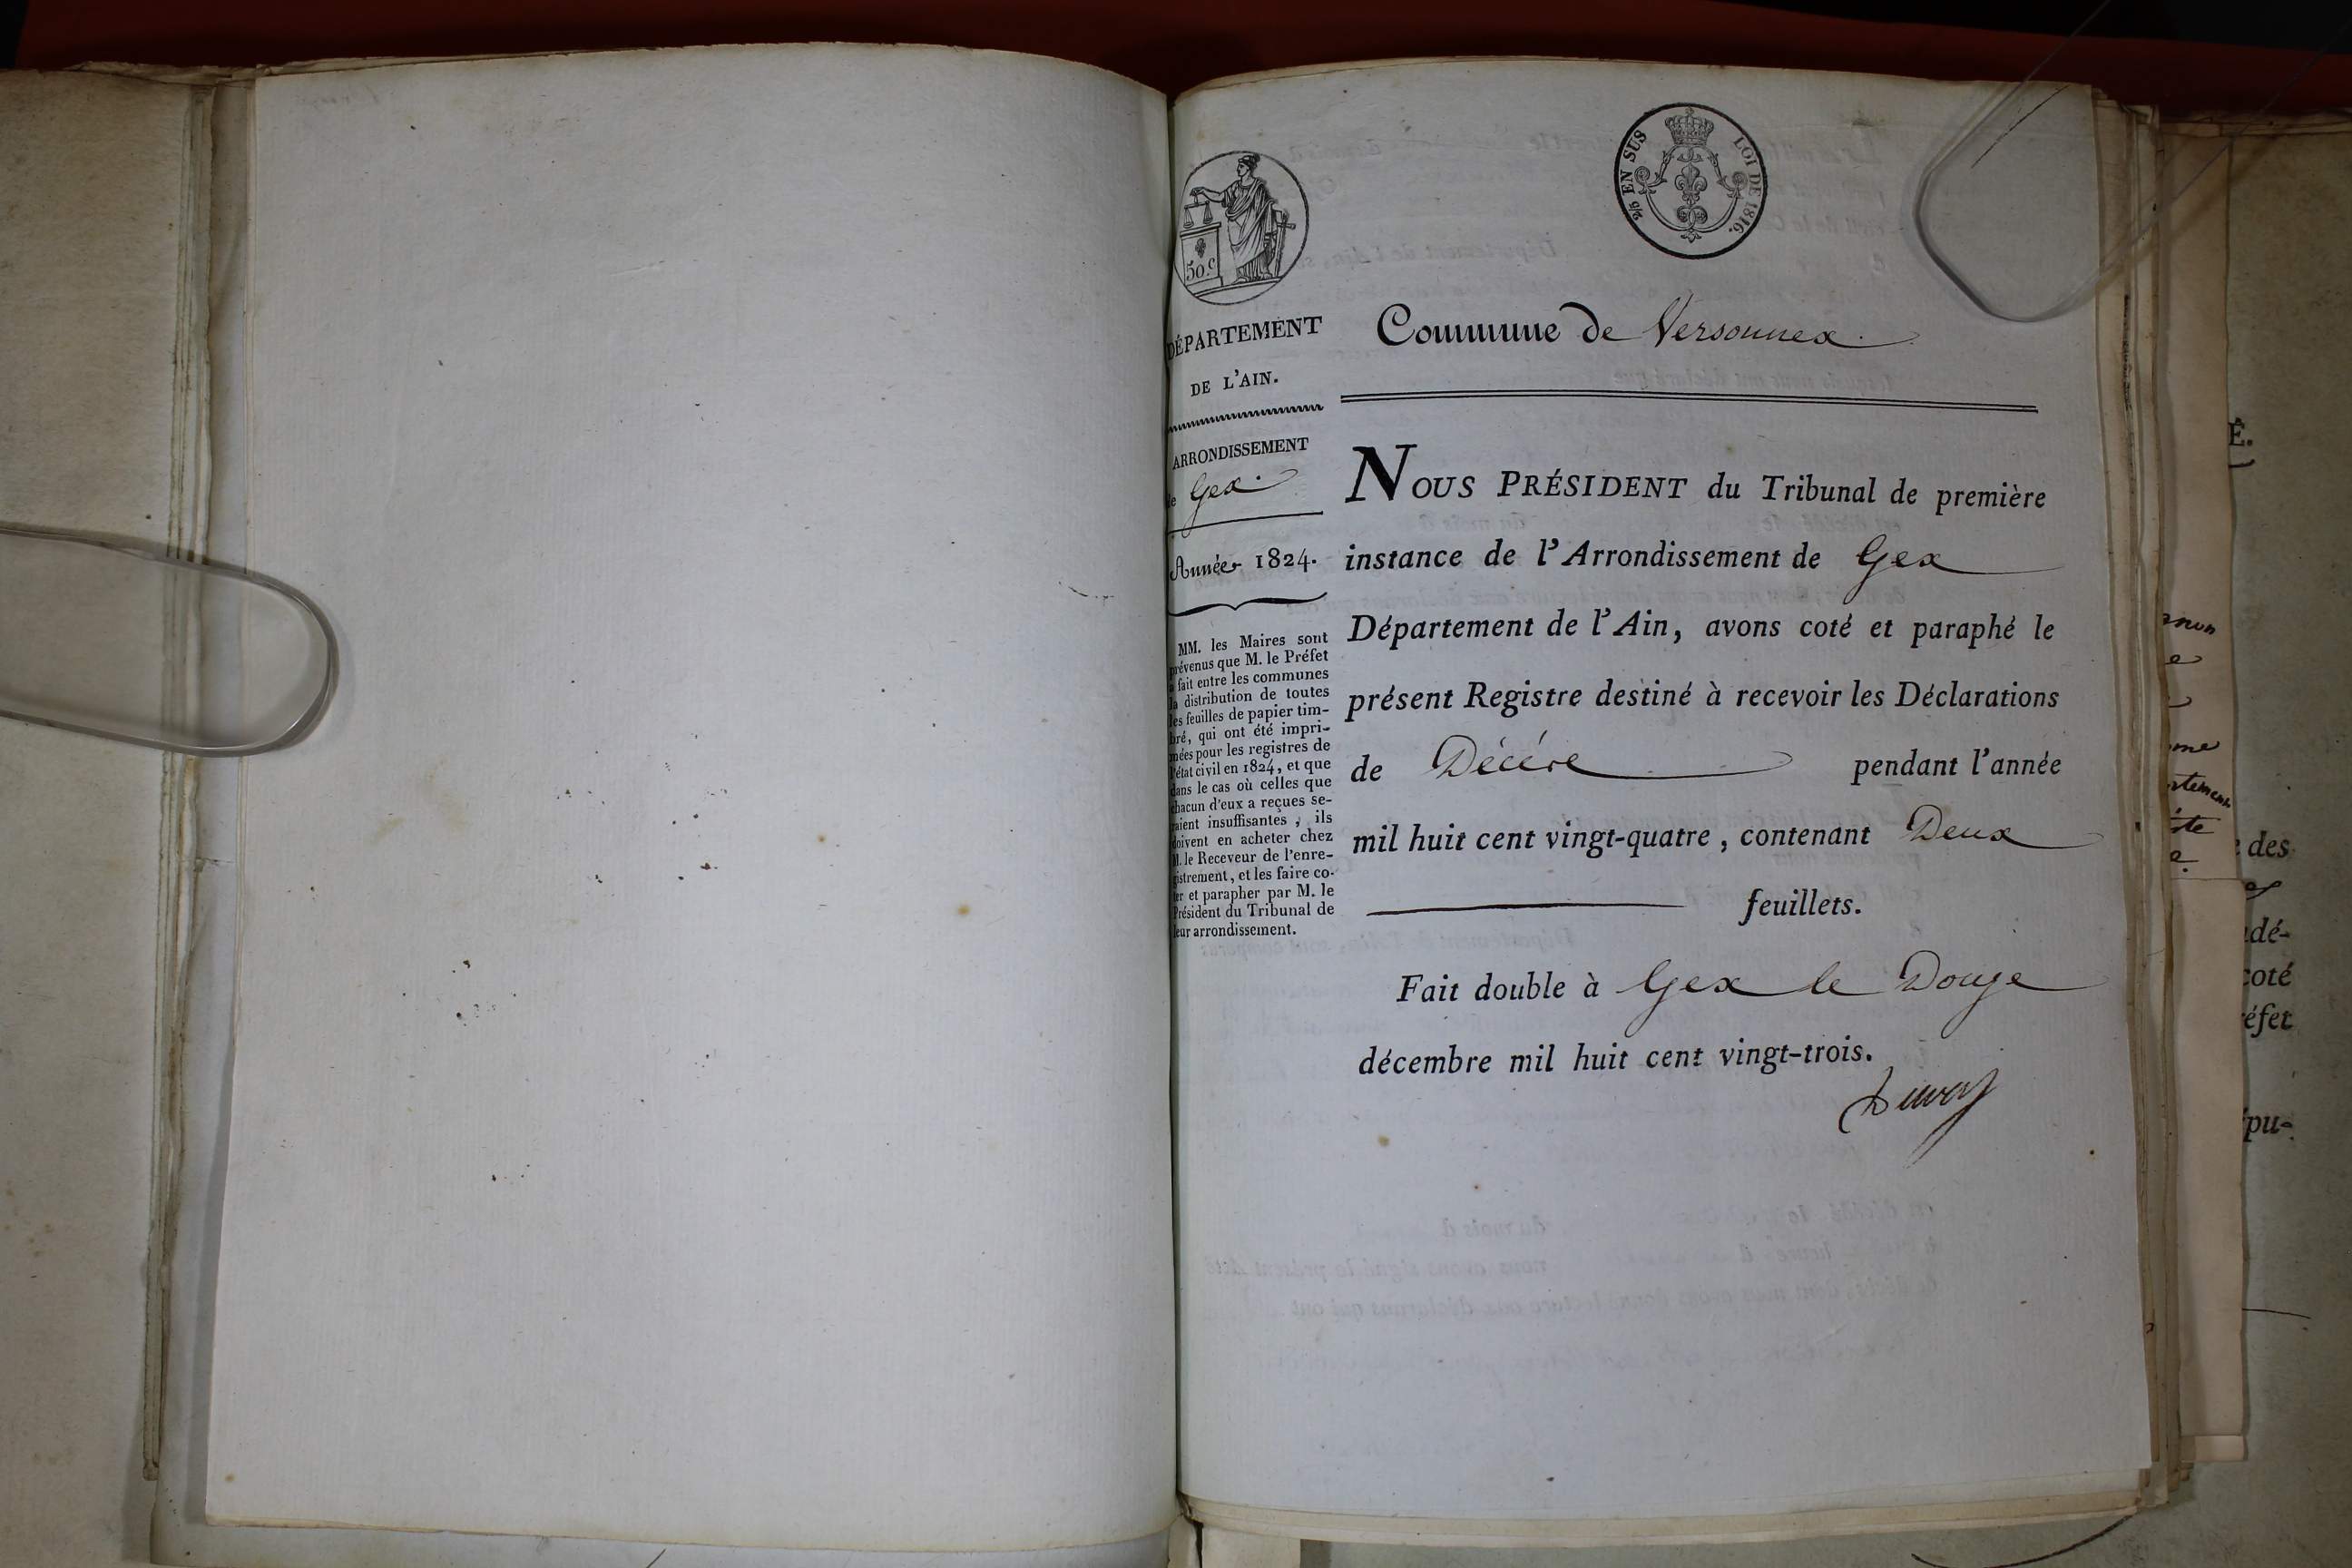 50.c
2/5 EN SUS LOI DE 1816.
DÉPARTEMENT
DE L'AIN.
ARRONDISSEMENT
de Gex
Année 1824.
MM. les Maires sont
prévenus que M. le Préfet
a fait entre les communes
la distribution de toutes
les feuilles de papier tim-
bré, qui ont été impri-
mées pour les registres de
l'état civil en 1824, et que
dans le cas où celles que
chacun d'eux a reçues se-
raient insuffisantes, ils
doivent en acheter chez
M. le Receveur de l'enre-
gistrement, et les faire co-
ter et parapher par M. le
Président du Tribunal de
leur arrondissement.
Commune de Versonnex.
NOUS PRÉSIDENT du Tribunal de première
instance de l'Arrondissement de Gex
Département de l'Ain, avons coté et paraphé le
présent Registre destiné à recevoir les Déclarations
de Décére pendant l'année
mil huit cent vingt-quatre, contenant Deux
feuillets.
Fait double à Gex le Douze
décembre mil huit cent vingt-trois.
É.
des
dé-
coté
éfet
pu-